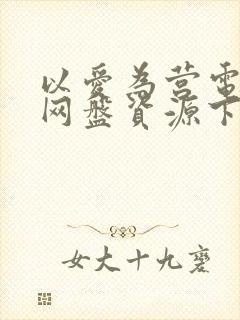 以爱为营电
网盘资源下
女大十九变